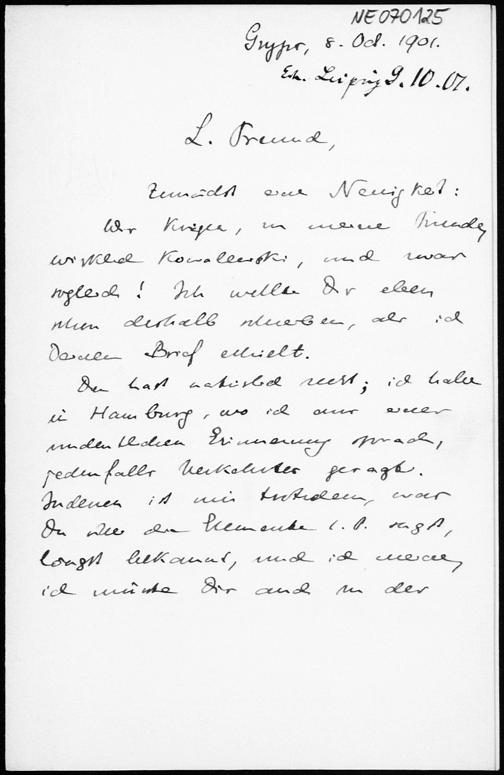 NE070125
Gryps, 8. Oct. 1901.
Erh. Leipzig 9.10.01.
L. Freund,
Zunächst eine Neuigkeit:
Wir kriegen, zu meiner Freude,
wirklich Kowalewski, und zwar
sogleich! Ich wollte Dir eben
schon deshalb schreiben, als ich
Deinen Brief erhielt.
Du hast natürlich recht; ich habe
in Hamburg, wo ich aus einer
undeutlichen Erinnerung sprach,
jedenfalls Verkehrtes gesagt.
Indessen ist mir trotzdem, was
Du über die Elemente i. P. sagst,
längst bekannt, und ich meine,
ich müsste Dir auch in der